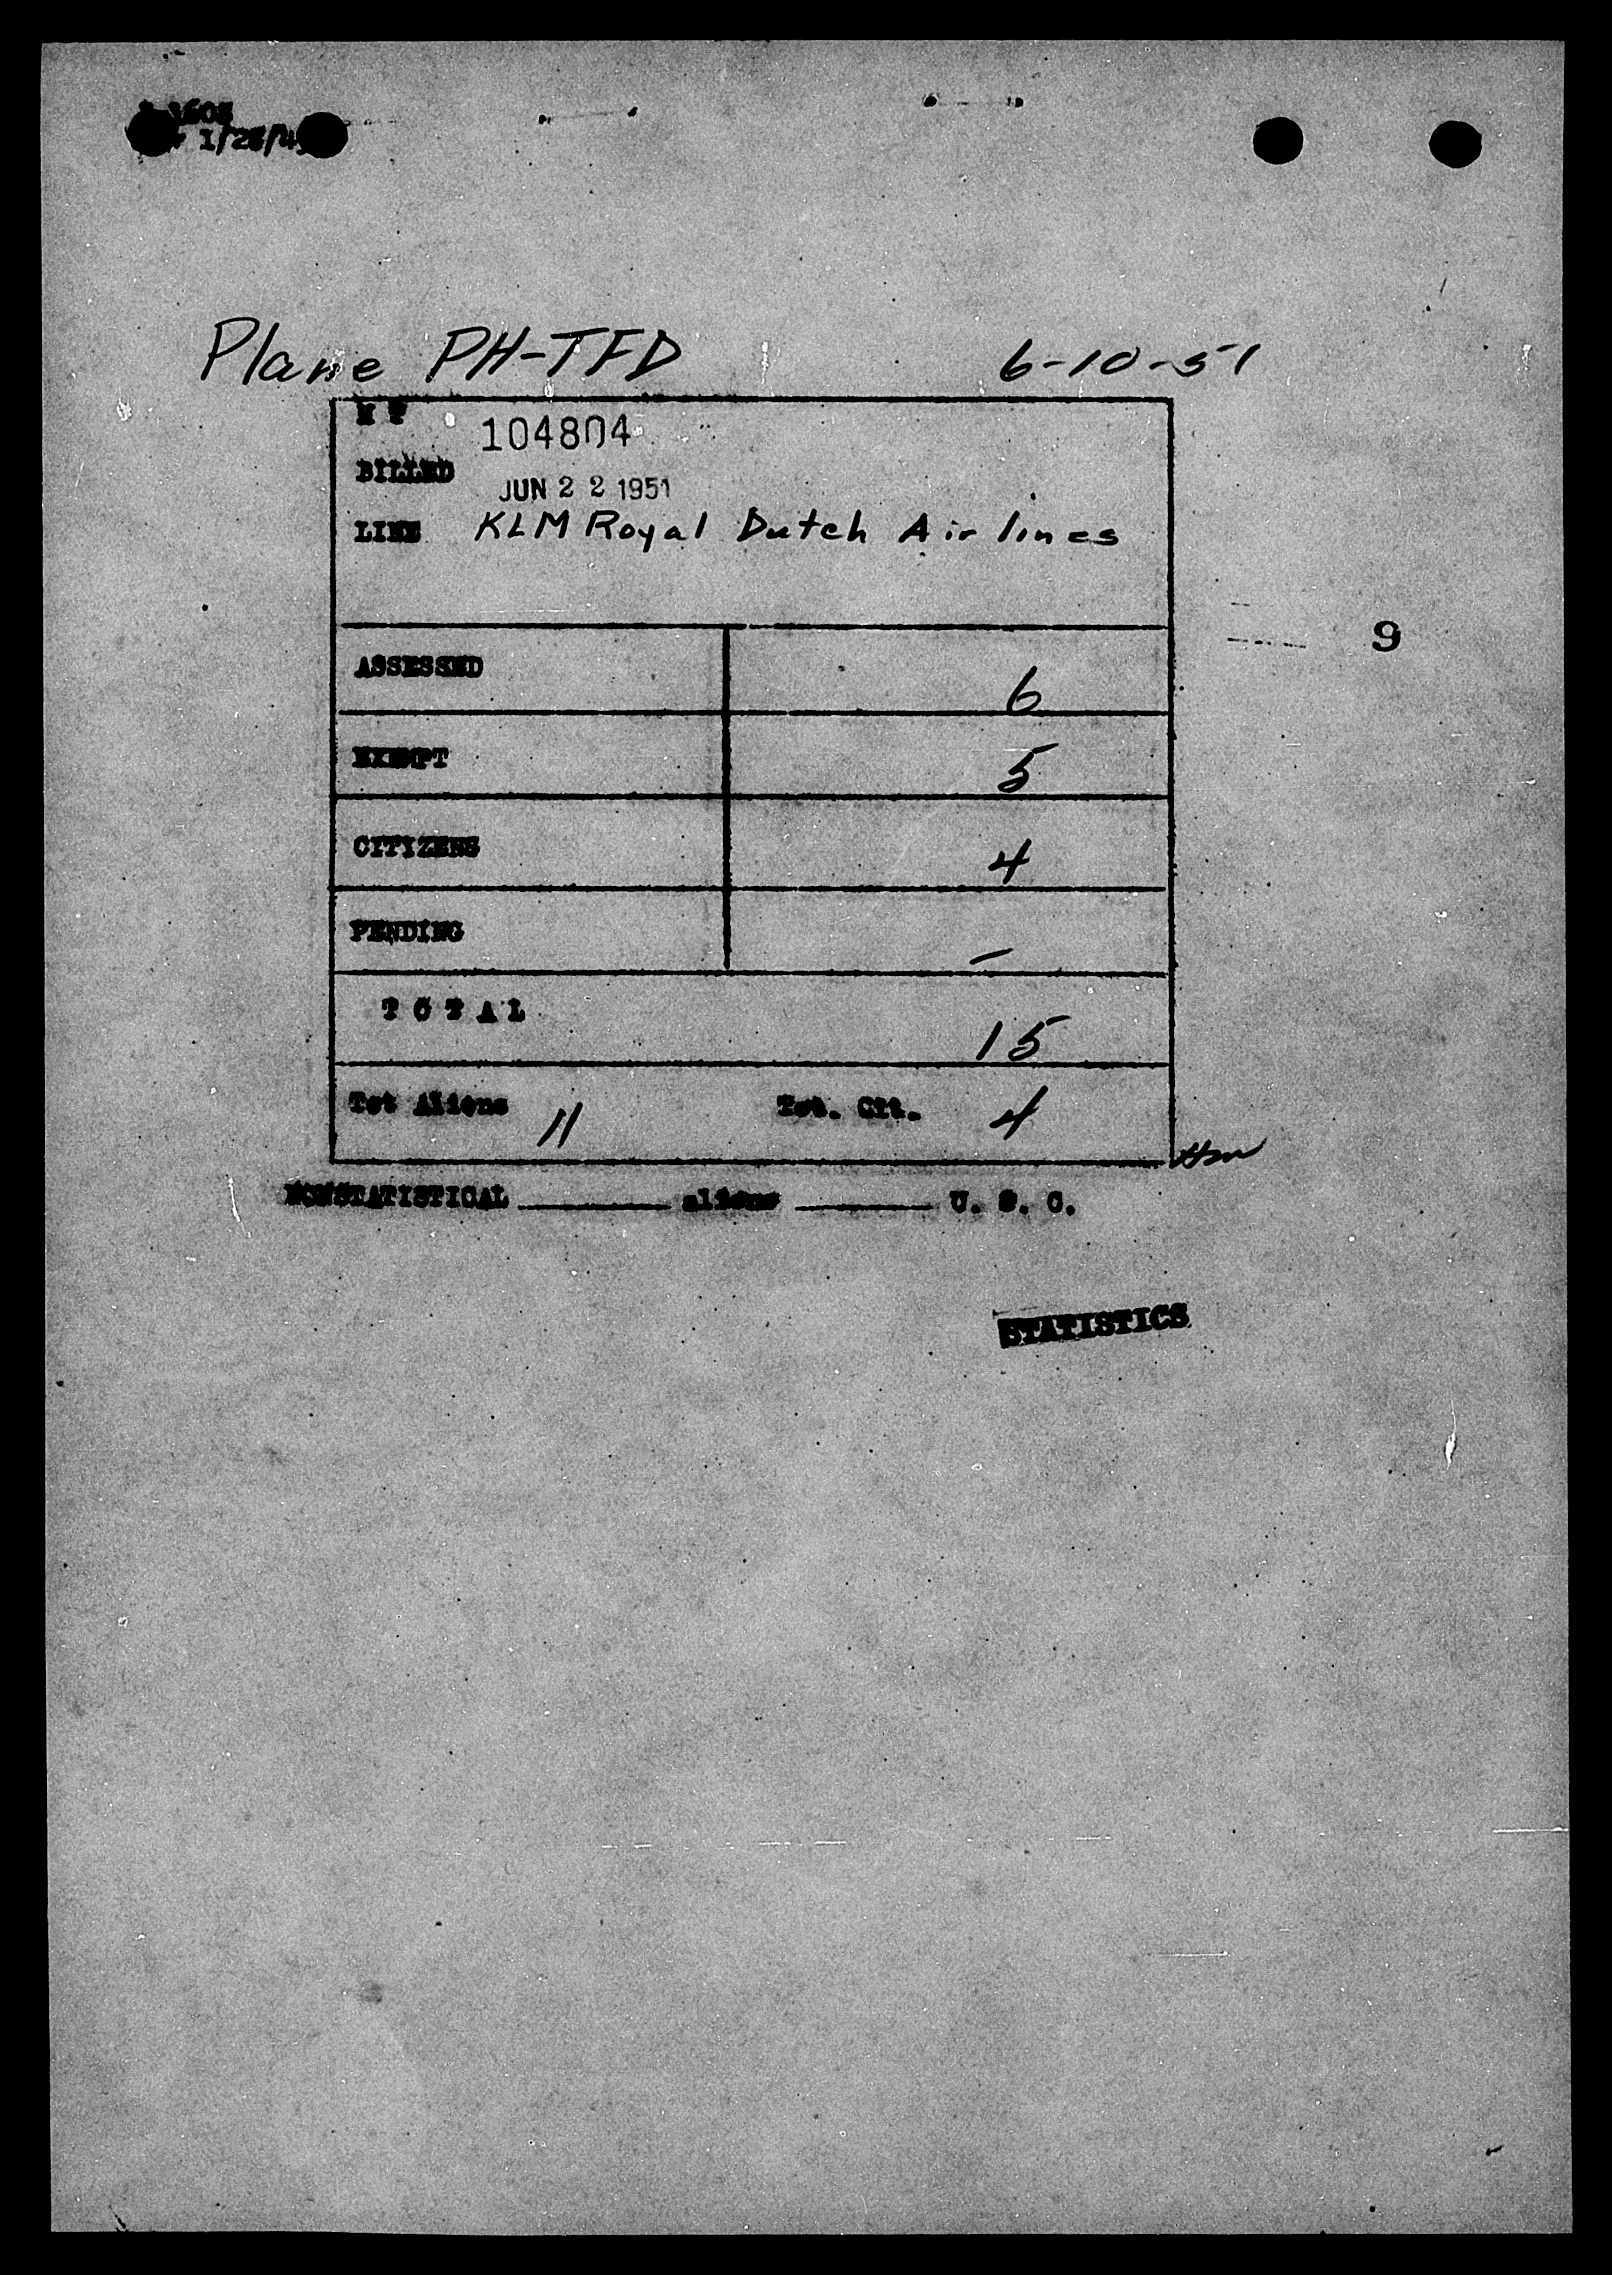 1/25/4
Plane PH-TFD 6-10-51
M T 104804
BILLED JUN 22 1951
LINE KLM Royal Dutch Airlines
9
ASSESSED 6
EXEMPT 5
CITIZENS 4
PENDING –
T O T A L 15
Tot Aliens 11 Tot. Cit. 4
NONSTATISTICAL ______ aliens ______ U. S. C.
STATISTICS